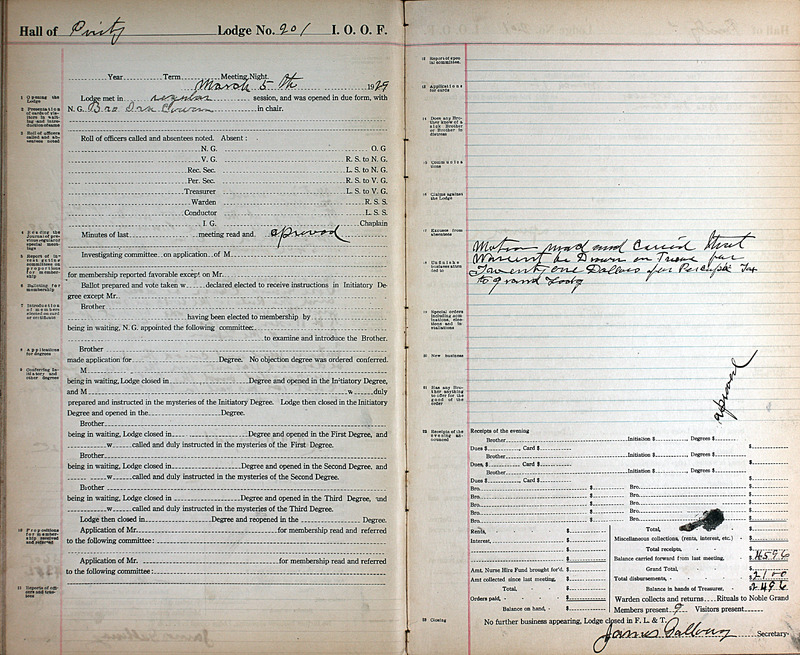 Hall of Purity Lodge No. 201 I. O. O. F.
Year Term Meeting Night.
March 5th 1929
1 Opening the Lodge
Lodge met in regular session, and was opened in due form, with
N. G. Bro in chair.
2 Presentation of cards of visitors in waiting and introduction of same
3 Roll of officers called and absentees noted
Roll of officers called and absentees noted. Absent:
N. G. O. G
V. G. R. S. to N. G.
Rec. Sec. L. S. to N. G.
Per. Sec. R. S. to V. G.
Treasurer L. S. to V. G.
Warden R. S. S.
Conductor L. S. S.
I. G. Chaplain
Minutes of last meeting read and aproved
Investigating committee on application of M
for membership reported favorable except on Mr.
6 Balloting for membership
Ballot prepared and vote taken w declared elected to receive instructions in Initiatory De-
gree except Mr.
Brother
having been elected to membership by
being in waiting, N. G. appointed the following committee:
to examine and introduce the Brother.
8 Applications for degrees
Brother
made application for Degree. No objection degree was ordered conferred.
9 Conferring Initiatory and other degrees
M
being in waiting, Lodge closed in Degree and opened in the Initiatory Degree,
and M w duly
prepared and instructed in the mysteries of the Initiatory Degree. Lodge then closed in the Initiatory
Degree and opened in the Degree.
Brother
being in waiting, Lodge closed in Degree and opened in the First Degree, and
w called and duly instructed in the mysteries of the First Degree.
Brother
being in waiting, Lodge closed in Degree and opened in the Second Degree, and
w called and duly instructed in the mysteries of the Second Degree.
Brother
being in waiting, Lodge closed in Degree and opened in the Third Degree, and
w called and duly instructed in the mysteries of the Third Degree.
Lodge then closed in Degree and reopened in the Degree.
10 Propositions for membership received and referred
Application of Mr. for membership read and referred
to the following committee:
Application of Mr. for membership read and referred
to the following committee:
11 Reports of officers and trustees
12 Report of special committees
13 Applications for cards
14 Does any Brother know of a sick Brother or Brother in distress
15 Communications
16 Claims against the Lodge
17 Excuses from absentees
18 Unfinish business attended to
Motion mad and carried that
Warent be Drawn on Tresue for
Twenty one Dollars for Tax
to grand Lodg
20 New business
21 Has any Brother anything to offer for the good of the order
aproved
22 Receipts of the evening announced
Receipts of the evening
Brother Initiation $ Degrees $
Dues $ , Card $ $
Brother Initiation $ Degrees $
Dues, $ , Card $ $
Brother Initiation $ Degrees $
Dues $ , Card $ $
Bro. $ Bro. $
Bro. $ Bro. $
Bro. $ Bro. $
Bro. $ Bro. $
Rents, $ Total, $
Interest, $ Miscellaneous collections, (rents, interest, etc.) $
$ Total receipts, $
Amt. Nurse Hire Fund brought for'd. $ Balance carried forward from last meeting, $
Amt collected since last meeting, $ Grand Total, $
Total, $ Total disbursements, $
Orders paid, $ Balance in hands of Treasurer, $
Balance on hand, $ Warden collects and returns Rituals to Noble Grand
Members present 9 Visitors present
23 Closing
No further business appearing, Lodge closed in F. L. & T.
James Secretary